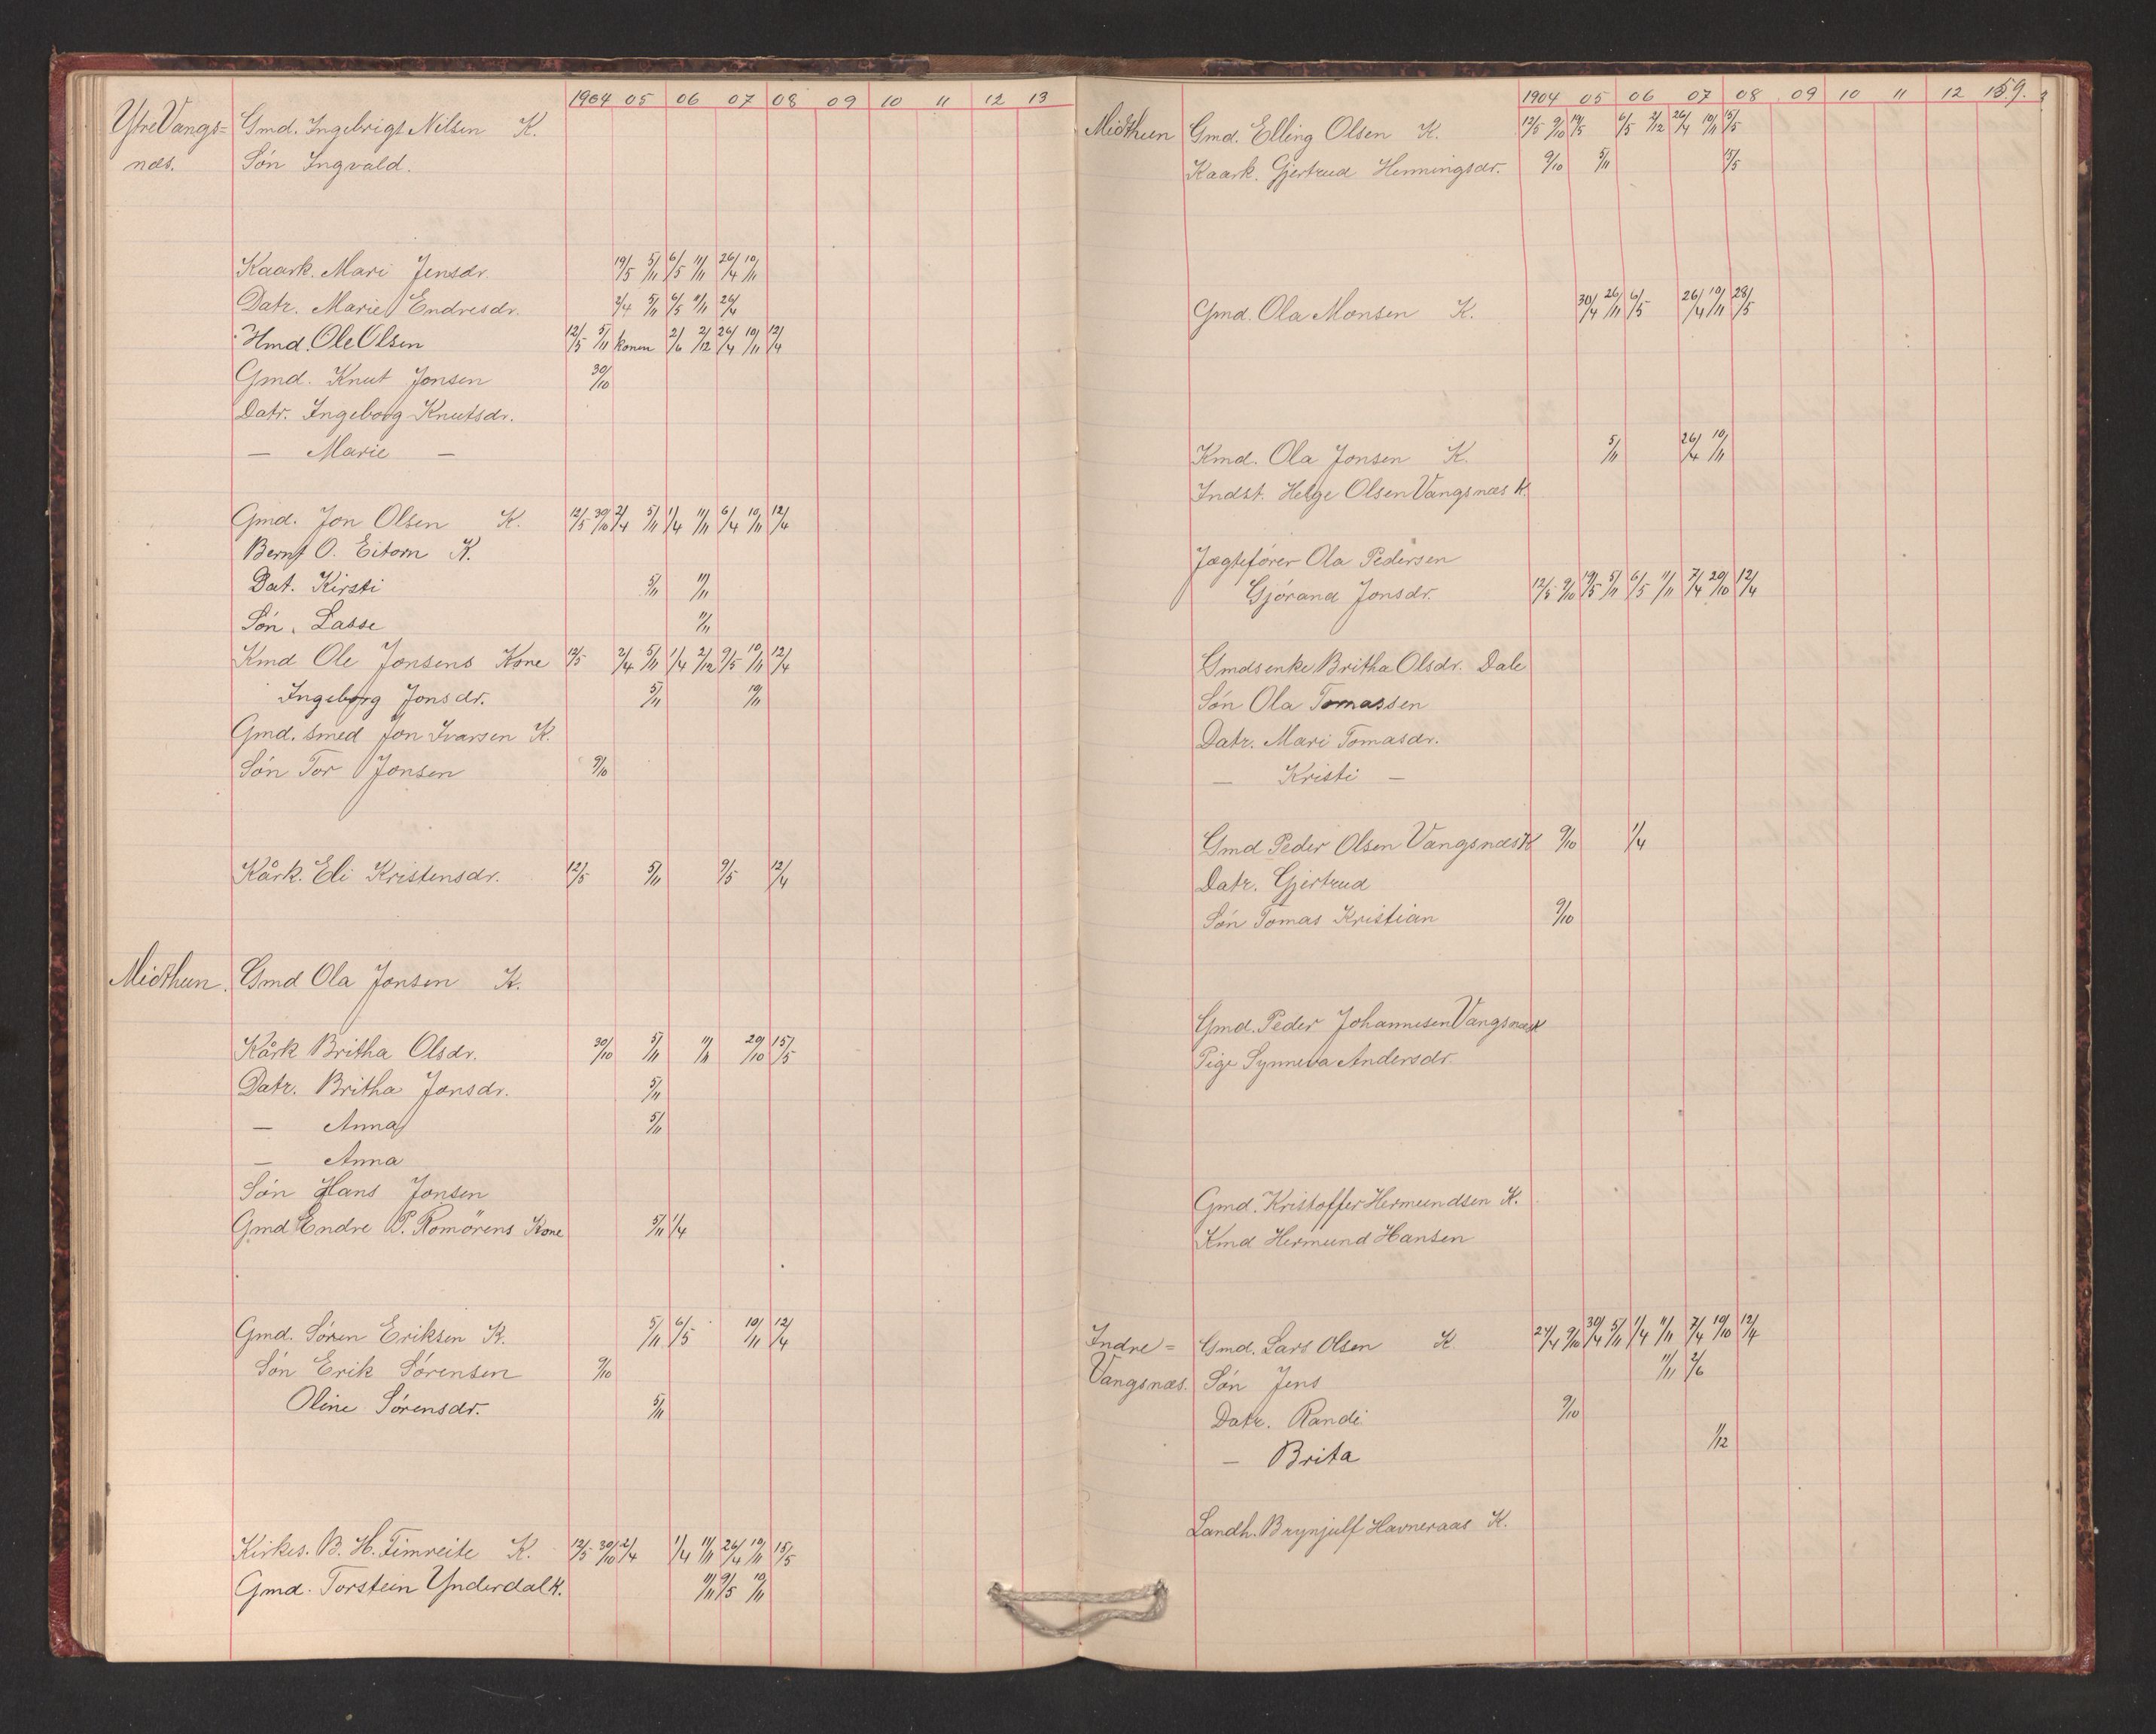 1904 05 06 07 08 09 10 11 12 13
Ytre Vangs= Gmd. Ingebrigt Nilsen K.
næs. Søn Ingvald.
Kaark. Mari Jensdr. 19/5 5/11 6/5 11/11 26/4 10/11
Datr. Marie Endresdr. 2/4 5/11 6/5 11/11 26/4
Hmd. Ole Olsen 12/5 5/11 konen 2/6 2/12 26/4 10/11 12/4
Gmd. Knut Jonsen 30/10
Datr. Ingeborg Knutsdr.
— Marie —
Gmd. Jon Olsen K. 12/5 30/10 2/4 5/11 1/4 11/11 6/4 10/11 12/4
Bernt O. Eitorn K.
Dat. Kirsti 5/11 11/11
Søn. Lasse 11/11
Kmd Ole Jonsens Kone 12/5 2/4 5/11 1/4 2/12 9/5 10/11 12/4
Ingeborg Jonsdr. 5/11 10/11
Gmd. smed Jon Ivarsen K.
Søn Tor Jonsen 9/10
Kårk. Eli Kristensdr. 12/5 5/11 9/5 12/4
Midthun. Gmd Ola Jonsen K.
Kårk Britha Olsdr. 30/10 5/11 11/11 20/10 15/5
Datr. Britha Jonsdr. 5/11
— Anna 5/11
— Anna
Søn Hans Jonsen
Gmd Endre P. Romörens Kone 5/11 1/4
Gmd. Søren Eriksen K. 5/11 6/5 10/11 12/4
Søn Erik Sørensen 9/10
Oline Sørensdr. 5/11
Kirkes. B. H. Timreite K. 12/5 30/10 2/4 1/4 11/11 26/4 10/11 15/5
Gmd. Torstein Ynderdal K. 11/11 9/5 10/11
1904 05 06 07 08 09 10 11 12 13 59.
Midthun Gmd. Elling Olsen K. 12/5 9/10 19/5 6/5 2/12 26/4 10/11 15/5
Kaark. Gjertrud Henningsdr. 9/10 5/11 15/5
Gmd. Ola Monsen K. 30/4 26/11 6/5 26/4 10/11 28/5
Kmd. Ola Jonsen K. 5/11 26/4 10/11
Indst. Helge Olsen Vangsnæs K.
Jægtefører Ola Pedersen
Gjørand Jonsdr. 12/5 9/10 19/5 5/11 6/5 11/11 7/4 20/10 12/4
Gmdsenke Britha Olsdr. Dale
Søn Ola Tomassen
Datr. Mari Tomasdr.
— Kristi —
Gmd Peder Olsen Vangsnæs K 9/10 1/4
Datr. Gjertrud
Søn Tomas Kristian 9/10
Gmd. Peder Johannesen Vangsnæs K
Pige Synneva Andersdr.
Gmd. Kristoffer Hermundsen K.
Kmd Hermund Hansen
Indre= Gmd. Lars Olsen K. 24/4 9/10 30/4 5/11 1/4 11/11 7/4 10/10 12/4
Vangsnæs. Søn Jens 11/11 2/6
Datr. Randi 9/10
— Brita 1/12
Landh. Brynjulf Havneraas K.